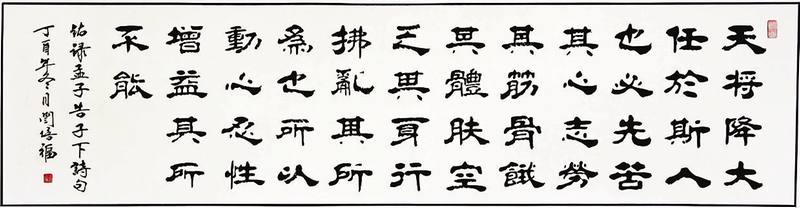 天将降大
任於斯人
也必先苦
其心志勞
其筋骨餓
其體肤空
乏其身行
拂亂其所
為也所以
動心忍性
增益其所
不能
录孟子告子下詩句
丁酉年冬月閆培福